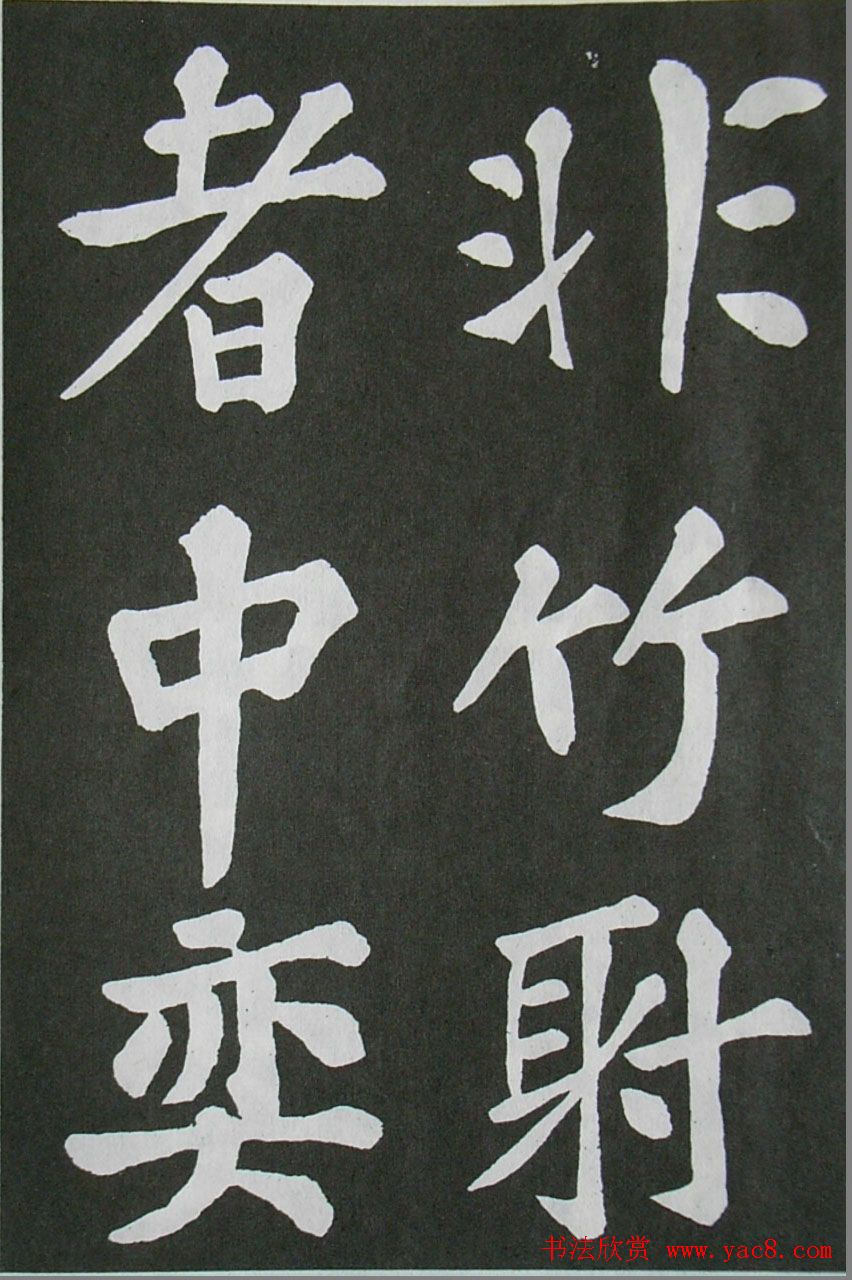 非竹射
者中奕
书法欣赏 www.yac8.com